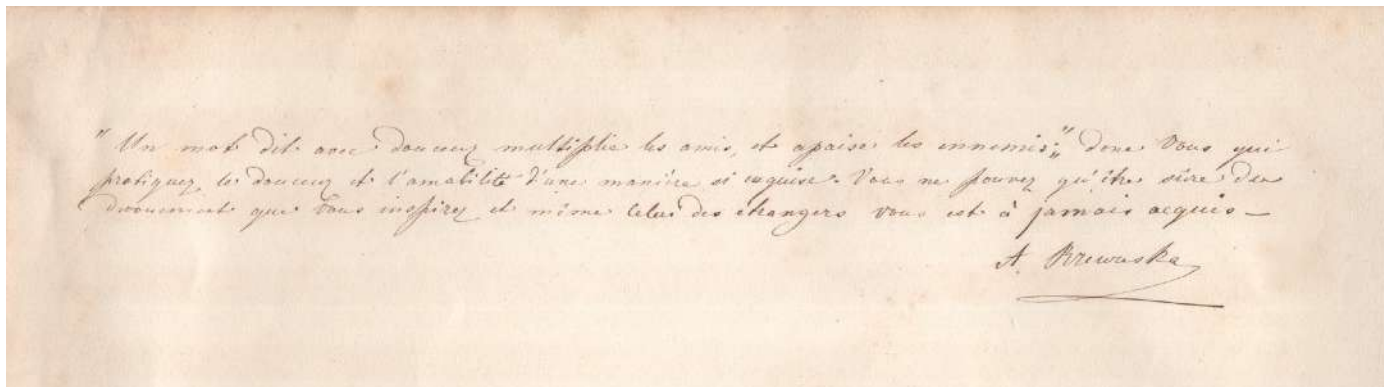 "Un mot dit avec douceur multiplie les amis, et apaise les ennemis;" donc Vous qui
pratiquez la douceur et l'amabilité d'une manière si exquise. Vous ne pouvez qu'être sûre du
dévouement que Vous inspirez et même celui des étrangers vous est à jamais acquis —
A. Rzewuska